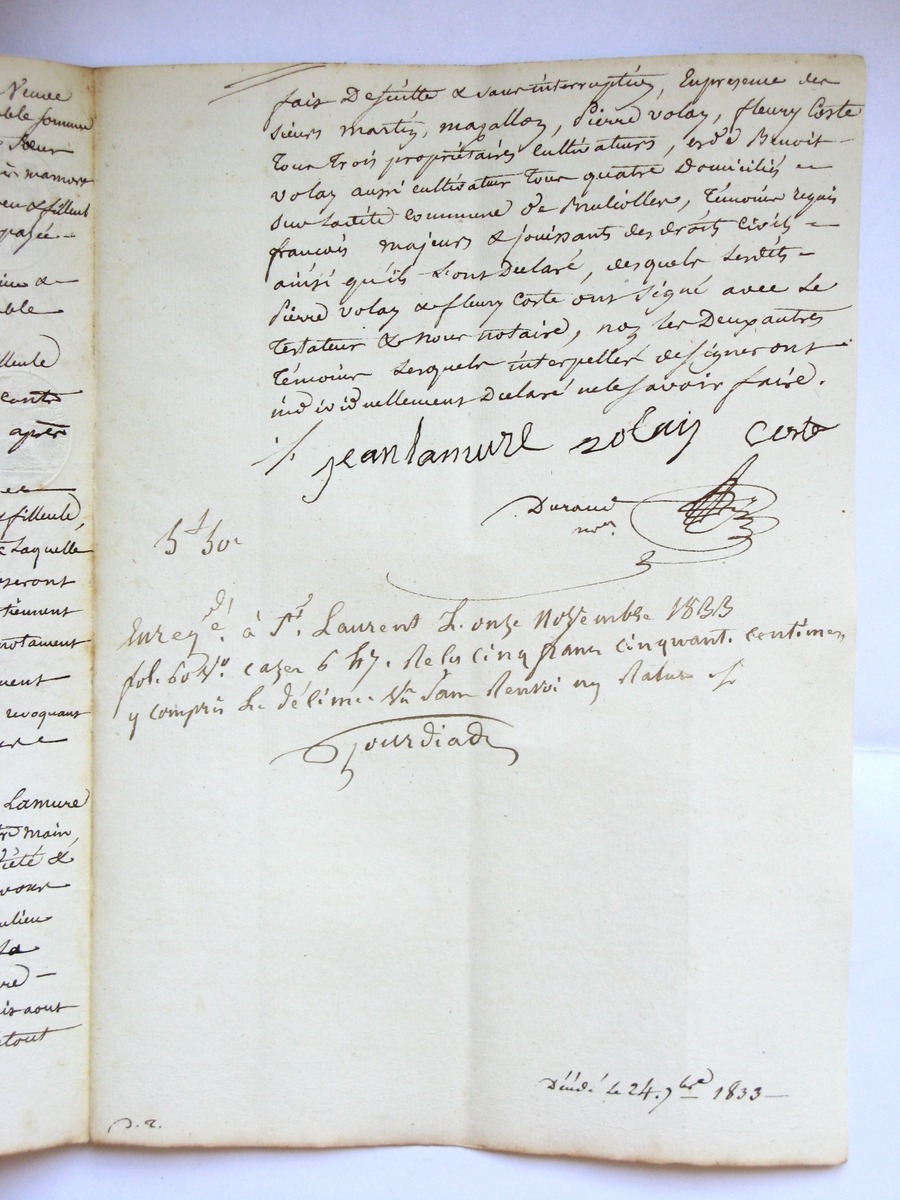 Veuve
able somme
Sœur
mamors
payée -
able
illeule
contre
après
filleule,
laquelle
seront
notament
ment
revoquant
Lamure
main,
piété &
vour
la
aout
fait De suitte & sans interruption, En presence des
sieurs martin, magallon, Pierre volay, fleury Corte
tous trois propriétaires cultivateurs, et de Benoit
volay aussi cultivateur tous quatre Domiciliés -
sur ladite commune de Brullolles, Témoins requis
francois majeurs & jouissants des droits civils -
ainsi qu'ils L'ont Declaré, desquels Lesdits -
Pierre volay & fleury Corte ont signé avec Le
Testateur & nous notaire, non Les Deux autres
Témoins Lesquels interpellés de signer ont
individuellement Declaré ne le savoir faire.
jean lamure volay Corte
Durand
nore.
5f 50c
Enregé. à St. Laurent Le onze Novembre 1833
fol. 60 Vo. cases 6 & 7. Reçu cinq francs cinquante centimes
y compris Le décime Vu sans Renvoi ny Rature
Jourdiade
Décédé Le 24. 7bre 1833 -